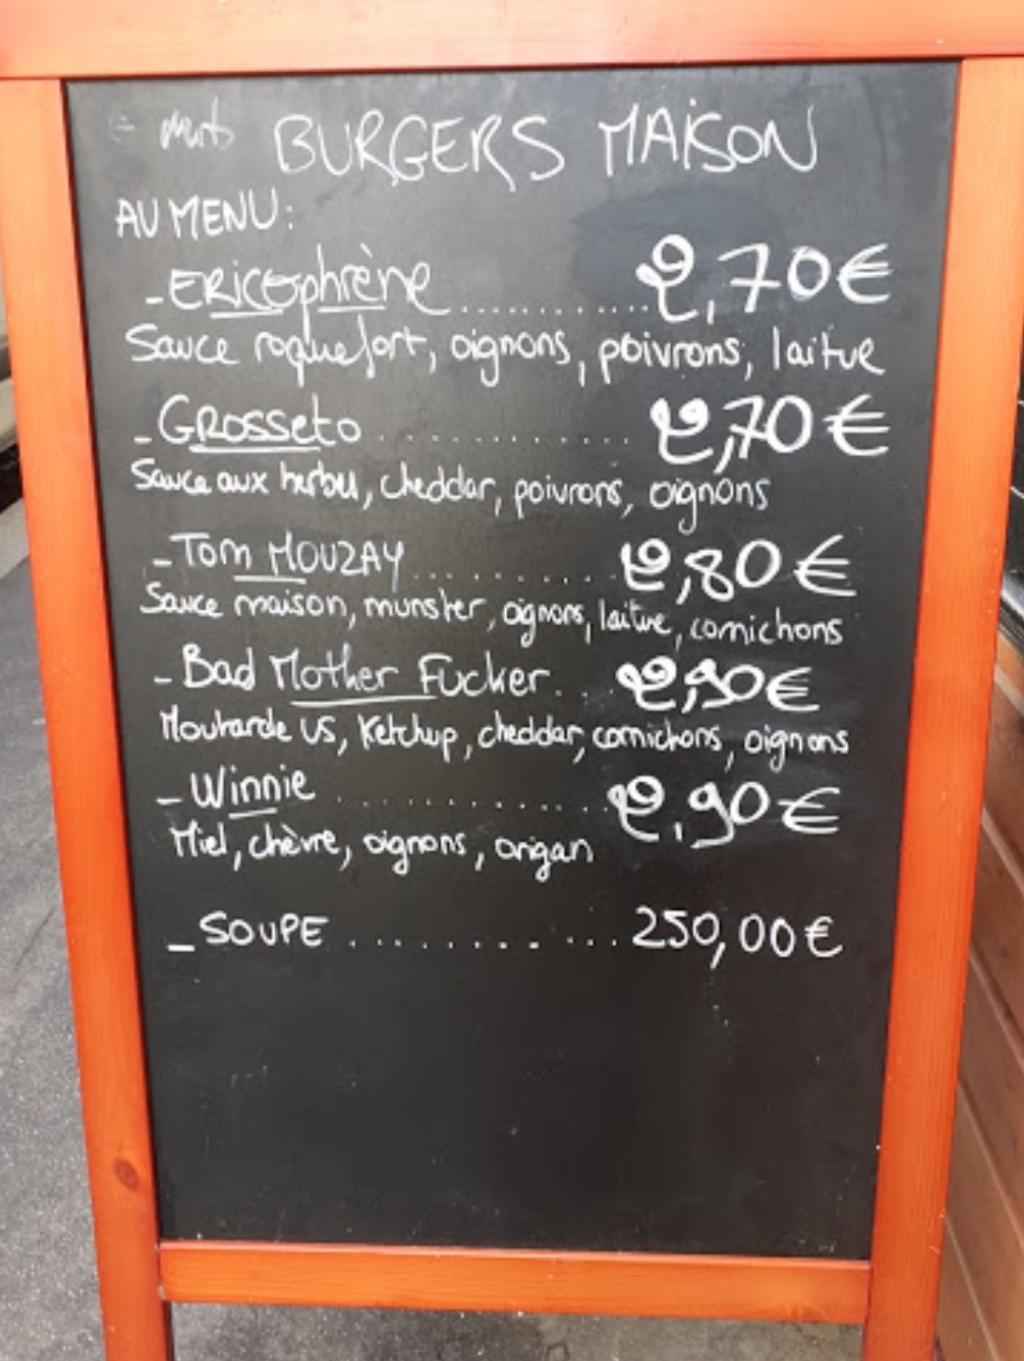 BURGERS MAISON
AU MENU:
- ERICOphrène ............ 2,70€
Sauce roquefort, oignons, poivrons, laitue
- GROSSETO ............ 2,70€
Sauce aux herbes, cheddar, poivrons, oignons
- Tom MOUZAY .......... 2,80€
Sauce maison, munster, oignons, laitue, cornichons
- Bad Mother Fucker... 2,90€
Moutarde US, Ketchup, cheddar, cornichons, oignons
- Winnie ............ 2,90€
Miel, chèvre, oignons, origan
- SOUPE ............ 250,00€